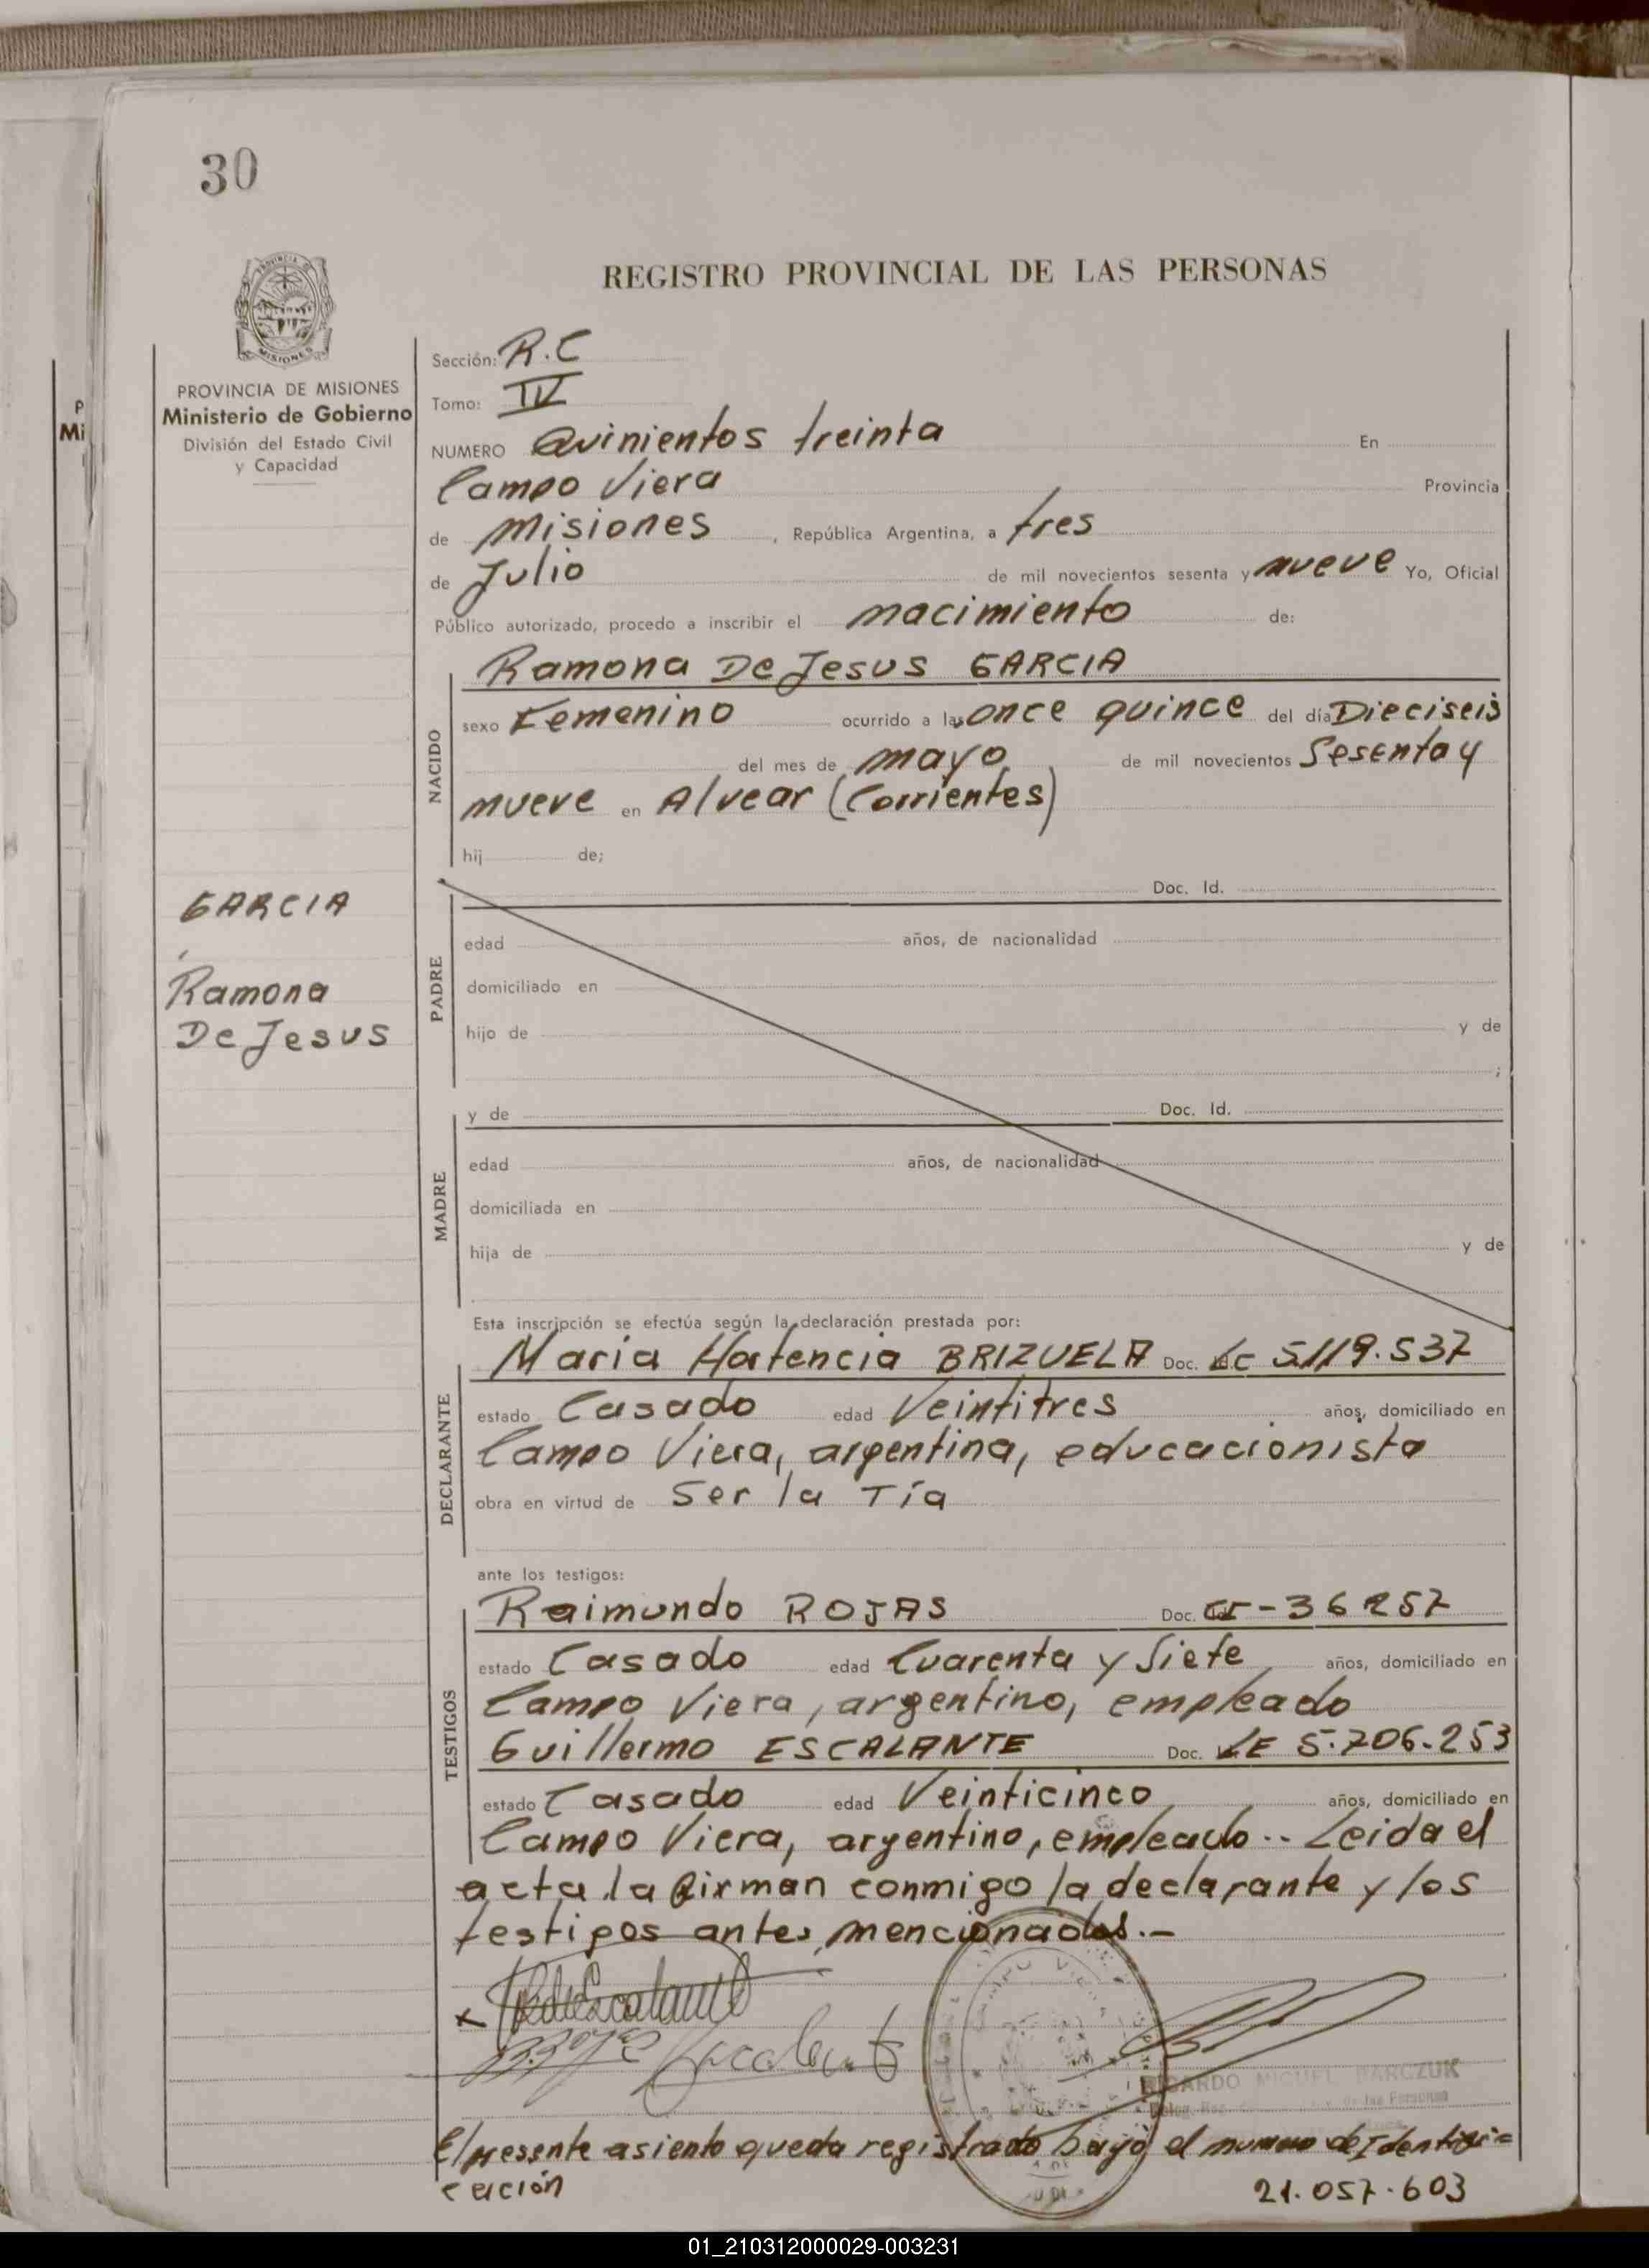 30
REGISTRO PROVINCIAL DE LAS PERSONAS
PROVINCIA DE MISIONES
Ministerio de Gobierno
División del Estado Civil
y Capacidad
P
Mi
Sección: R.C
Tomo: IV
NUMERO Quinientos treinta En
Campo Viera Provincia
de Misiones, República Argentina, a tres
de Julio de mil novecientos sesenta y nueve Yo, Oficial
Público autorizado, procedo a inscribir el nacimiento de:
Ramona De Jesus GARCIA
NACIDO
sexo Femenino ocurrido a las once quince del día Dieciseis
del mes de mayo de mil novecientos Sesenta y
nueve en Alvear (Corrientes)
hij de;
GARCIA
Ramona
De Jesus
PADRE
Doc. Id.
edad años, de nacionalidad
domiciliado en
hijo de y de
;
MADRE
y de Doc. Id.
edad años, de nacionalidad
domiciliada en
hija de y de
Esta inscripción se efectúa según la declaración prestada por:
DECLARANTE
Maria Hortencia BRIZUELA Doc. LC 5.119.537
estado Casado edad Veintitres años, domiciliado en
Campo Viera, argentina, educacionista
obra en virtud de Ser la Tía
ante los testigos:
TESTIGOS
Raimundo ROJAS Doc. -36257
estado Casado edad Cuarenta y Siete años, domiciliado en
Campo Viera, argentino, empleado
Guillermo ESCALANTE Doc. LE 5.706.253
estado Casado edad Veinticinco años, domiciliado en
Campo Viera, argentino, empleado.- Leida el
acta la firman conmigo la declarante y los
testigos antes mencionados.-
RICARDO MIGUEL BARCZUK
El presente asiento queda registrado bajo el numero de Identifi=
cación 21.057.603
01_210312000029-003231